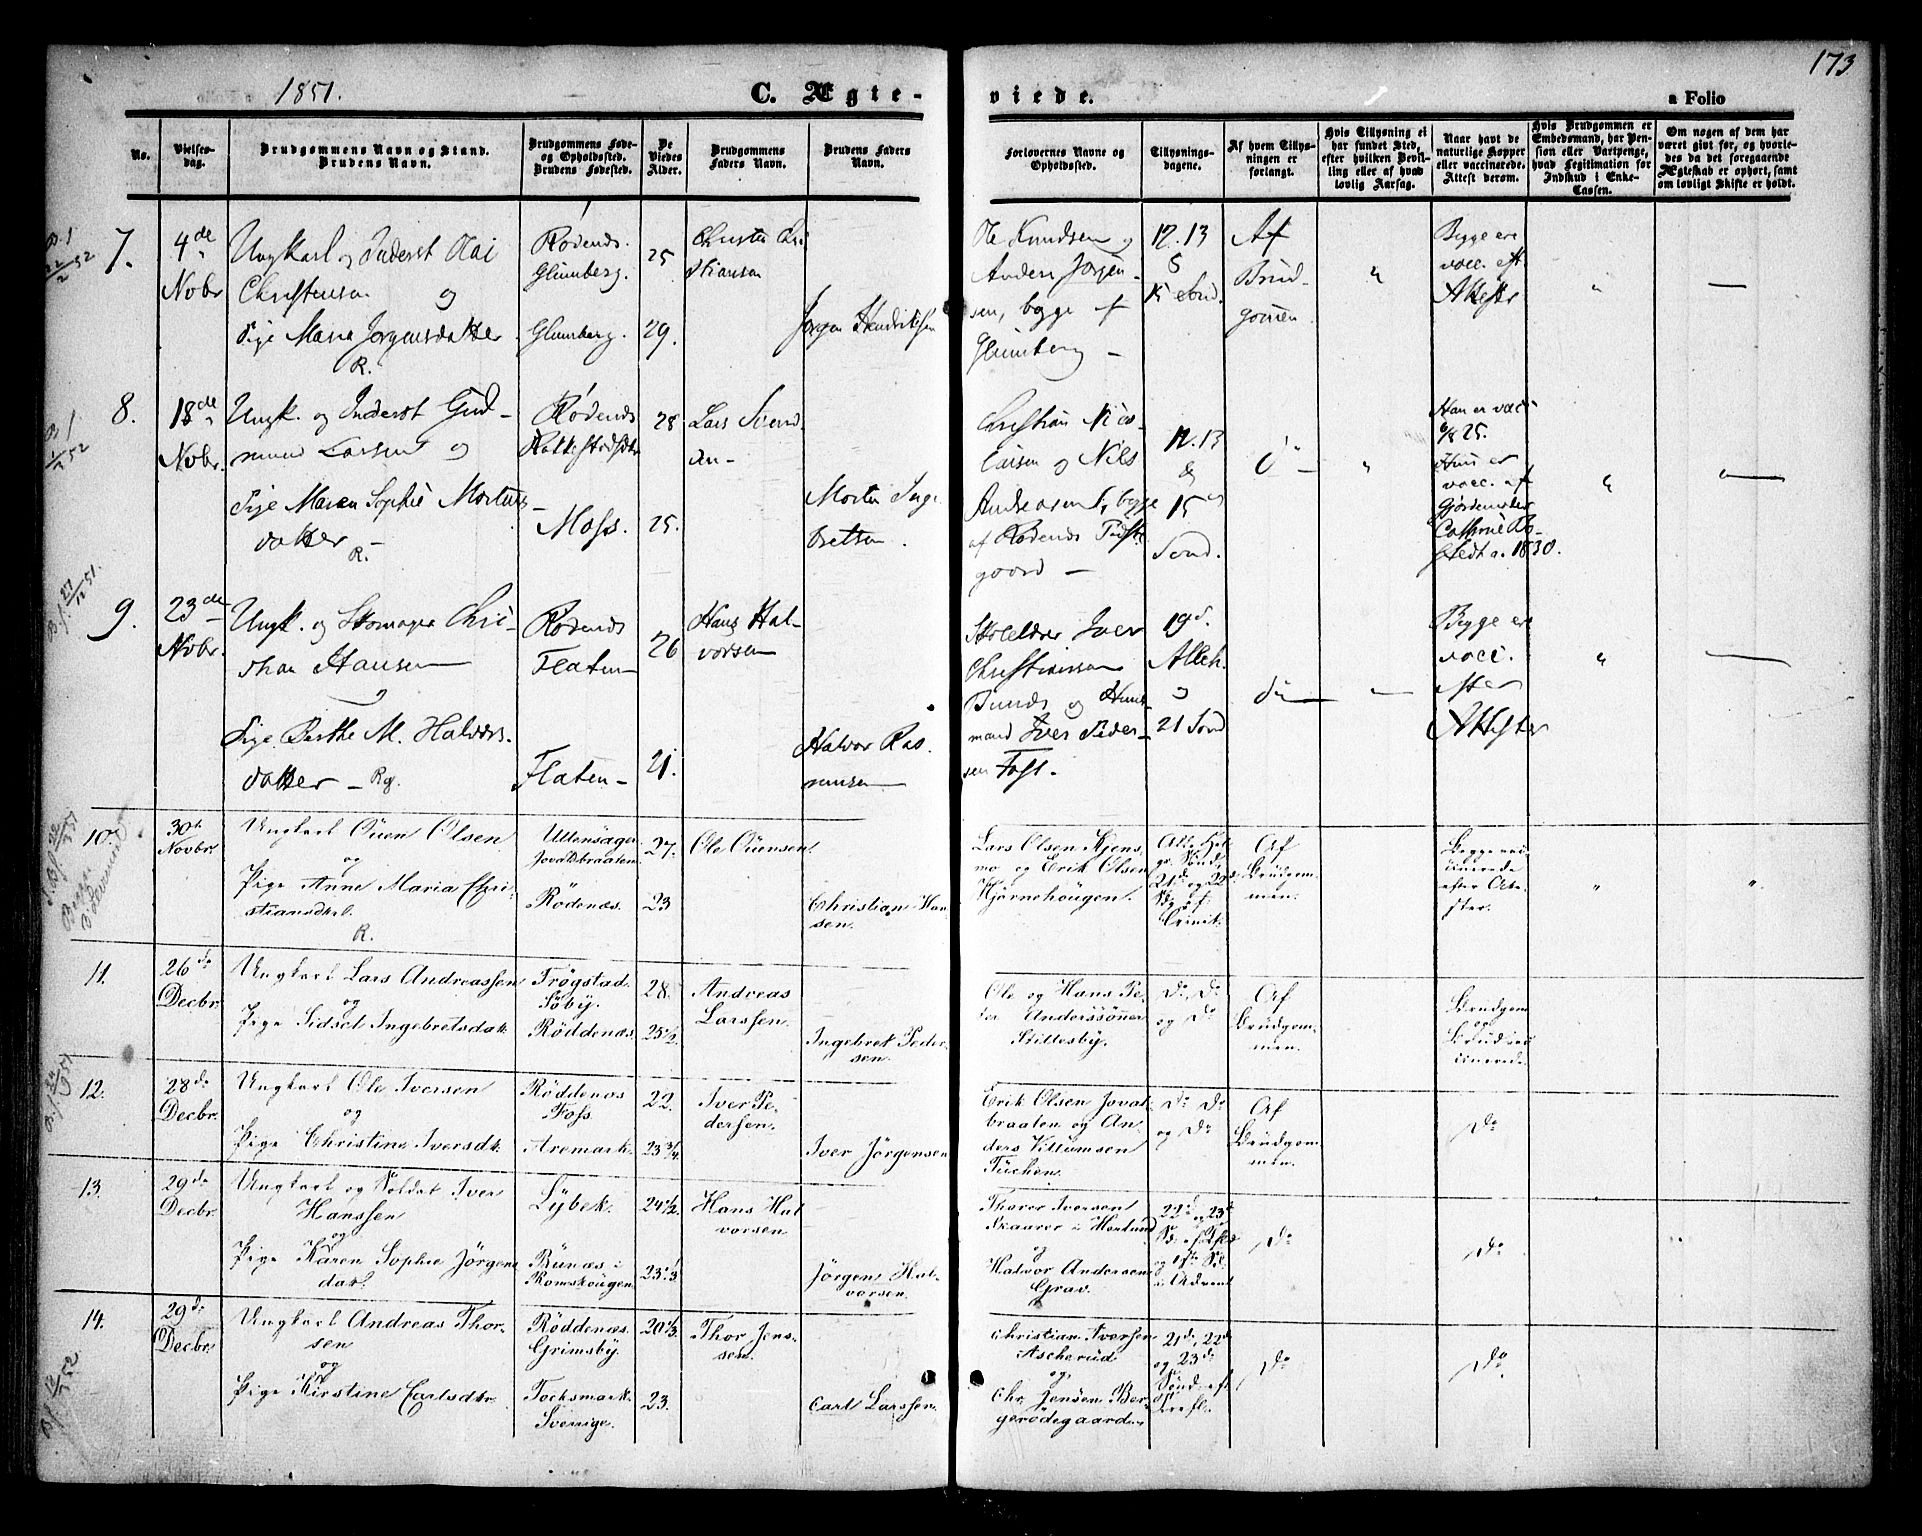 1851.
C. Ægteviede.
173
a Folio
No.
Vielsesdag.
Brudgommens Navn og Stand. Brudens Navn.
Brudgommens Føde- og Opholdssted. Brudens Fødested.
De Viedes Alder.
Brudgommens Faders Navn.
Brudens Faders Navn.
Forlovernes Navne og Opholdssted.
Tillysningsdagene.
Af hvem Tillysningen er forlangt.
Hvis Tillysning ei har fundet Sted, efter hvilken Bevilling eller af hvad lovlig Aarsag.
Naar havt de naturlige Kopper eller vaccinerede. Attest derom.
Hvis Brudgommen er Embedsmand, har Pension eller Vartpenge, hvad Legitimation for Indskud i Enke-Cassen.
Om nogen af dem har været gift før, og hvorledes da det foregaaende Ægteskab er ophørt, samt om lovligt Skifte er holdt.
7.
4de Nobr
Ungkarl og Inderst
Christensen og
Pige Maria Jørgensdatter
R.
Rødenæs
Glumberg.
Glumberg.
25
29.
Christen Christiansen
Jørgen Hendriksen
Ole Knudsen og
Anders Jørgensen, begge af
Glumberg —
12. 13
&
15 Sønd.
Af
Brudgommen
Begge ere
vacc. eft.
Attester
8.
18de Novbr.
Ungk. og Inderst Gudmund Larsen og
Pige Maren Sophie Mortensdatter —
R.
Rødenæs
Moss.
28
25.
Lars Svendsen —
Morten Ingebretsen.
Christian Nicolaisen og Nils
Andreasen, begge
af Rødenæs
12. 13
&
15
Sønd.
Han er vacc
6/8 25.
Hun er
vacc. af
Gjordemoder
a. 1830.
9.
23de Novbr.
Ungk. og Skomager Christian Hansen
Pige Berthe M. Halvorsdatter — Rg.
Rødenæs
Flaten
Flaten —
26
21.
Hans Halvorsen
Halvor Rasmussen
Skolelærer Iver
Christiansen
og Huusmand Iver Pedersen Foss.
19d.
Alleh.
og
21 Sønd
do
Begge ere
vacc.
efter
Attester
10.
30te Novbr.
Ungkarl Ouen Olsen
og
Pige Anne Maria Christiansdtl.
R.
Ullensager
Jovalsbraaten
Rödenæs.
27.
23
Ole Ouensen
Christian Hansen.
Lars Olsen Kjensmo og Erik Olsen
Hjørnehougen.
21de og 22de
Af
Brudgommen.
Begge vaccinerede
efter Attester.
11.
26de Decbr.
Ungkarl Lars Andreassen
og
Pige Sidsel Ingebretsdatr.
Trøgstad
Söby.
Röddenæs.
28.
25 1/2.
Andreas
Larssen.
Ingebret Pedersen.
Ole og Hans Peder Anderssönner
Stillesby.
Do. Do
og Do
Af
Brudgommen.
Brudgom
og
Brud vaccinerede.
12.
28de Decbr.
Ungkarl Ole Iversen
og
Pige Christine Iversdtr.
Röddenæs
Foss.
Aremark.
22.
23 3/4.
Iver Pedersen.
Iver Jörgensen
Erik Olsen Jovalsbraaten og Anders Villumsen
Tüchen.
Do Do
og Do
Af
Brudgommen.
Do
13.
29de Decbr.
Ungkarl og Soldat Iver
Hanssen
og
Pige Karen Sophie Jörgensdatr.
Lybek.
Bünæs i
Romskougen
24 1/2.
23 1/3
Hans Halvorsen
Jörgen Halvorsen.
Thorer Iversen
Skaarer i Herland
og
Halvor Andersen
Grav.
22de og 23de
i Advent
Do
Do
14.
29de Decbr.
Ungkarl Andreas Thorsen
og
Pige Kirstine Carlsdtr.
Röddenæs.
Grimsby.
Tocksmark.
Sverrige.
20 1/3.
23.
Thor Jenssen.
Carl Larssen.
Christian Iversen
Ascherud
og
Chr. Jensen Bergerödegaarden
21de, 22de
og 23de
Sönd. eft
Do
Do